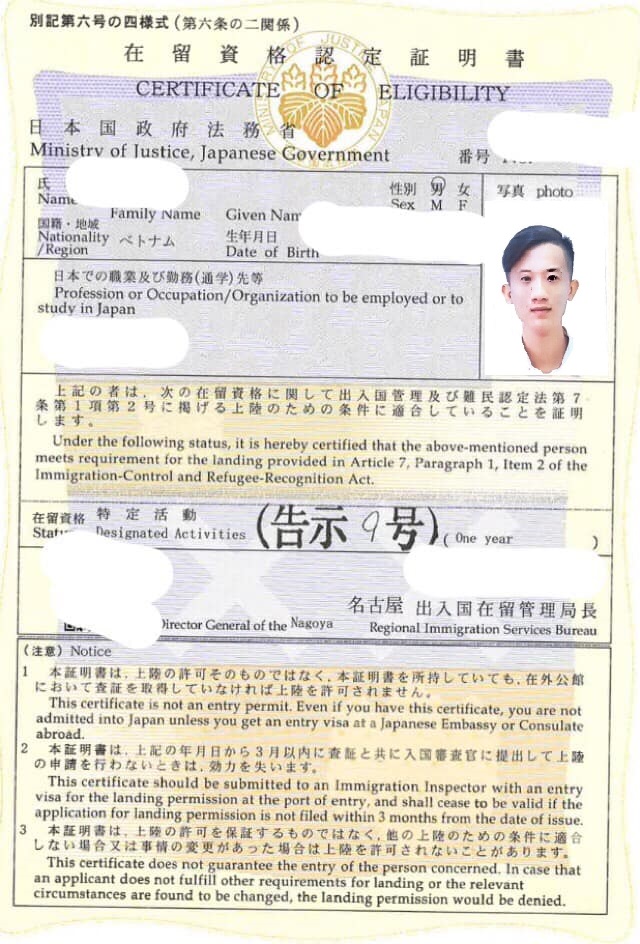 別記第六号の四様式(第六条の二関係)
在留資格認定証明書
CERTIFICATE OF ELIGIBILITY
MINISTRY OF JUSTICE, JAPAN
日本国政府法務省
Ministry of Justice, Japanese Government
番号
氏
Name
Family Name Given Nam
性別 男 女
Sex M F
写真 photo
国籍・地域
Nationality ベトナム
/Region
生年月日
Date of Birth
日本での職業及び勤務(通学)先等
Profession or Occupation/Organization to be employed or to
study in Japan
上記の者は,次の在留資格に関して出入国管理及び難民認定法第7
条第1項第2号に掲げる上陸のための条件に適合していることを証明
します。
Under the following status, it is hereby certified that the above-mentioned person
meets requirement for the landing provided in Article 7, Paragraph 1, Item 2 of the
Immigration-Control and Refugee-Recognition Act.
在留資格 特定活動 (告示9号)
Statu Designated Activities ( One year )
名古屋 出入国在留管理局長
Director General of the Nagoya Regional Immigration Services Bureau
(注意) Notice
1 本証明書は,上陸の許可そのものではなく,本証明書を所持していても,在外公館
において査証を取得していなければ上陸を許可されません。
This certificate is not an entry permit. Even if you have this certificate, you are not
admitted into Japan unless you get an entry visa at a Japanese Embassy or Consulate
abroad.
2 本証明書は,上記の年月日から3月以内に査証と共に入国審査官に提出して上陸
の申請を行わないときは,効力を失います。
This certificate should be submitted to an Immigration Inspector with an entry
visa for the landing permission at the port of entry, and shall cease to be valid if the
application for landing permission is not filed within 3 months from the date of issue.
3 本証明書は,上陸の許可を保証するものではなく,他の上陸のための条件に適合
しない場合又は事情の変更があった場合は上陸を許可されないことがあります。
This certificate does not guarantee the entry of the person concerned. In case that
an applicant does not fulfill other requirements for landing or the relevant
circumstances are found to be changed, the landing permission would be denied.